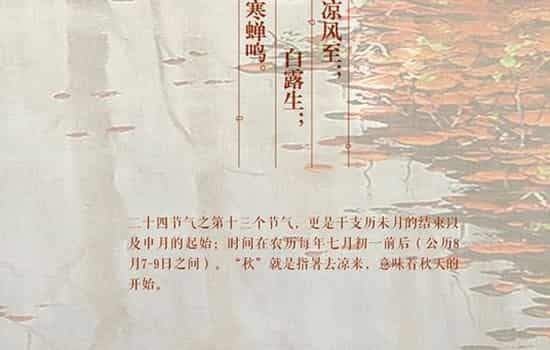 凉风至；
白露生；
寒蝉鸣。
二十四节气之第十三个节气，更是干支历未月的结束以
及申月的起始；时间在农历每年七月初一前后（公历8
月7-9日之间）。“秋”就是指暑去凉来，意味着秋天的
开始。